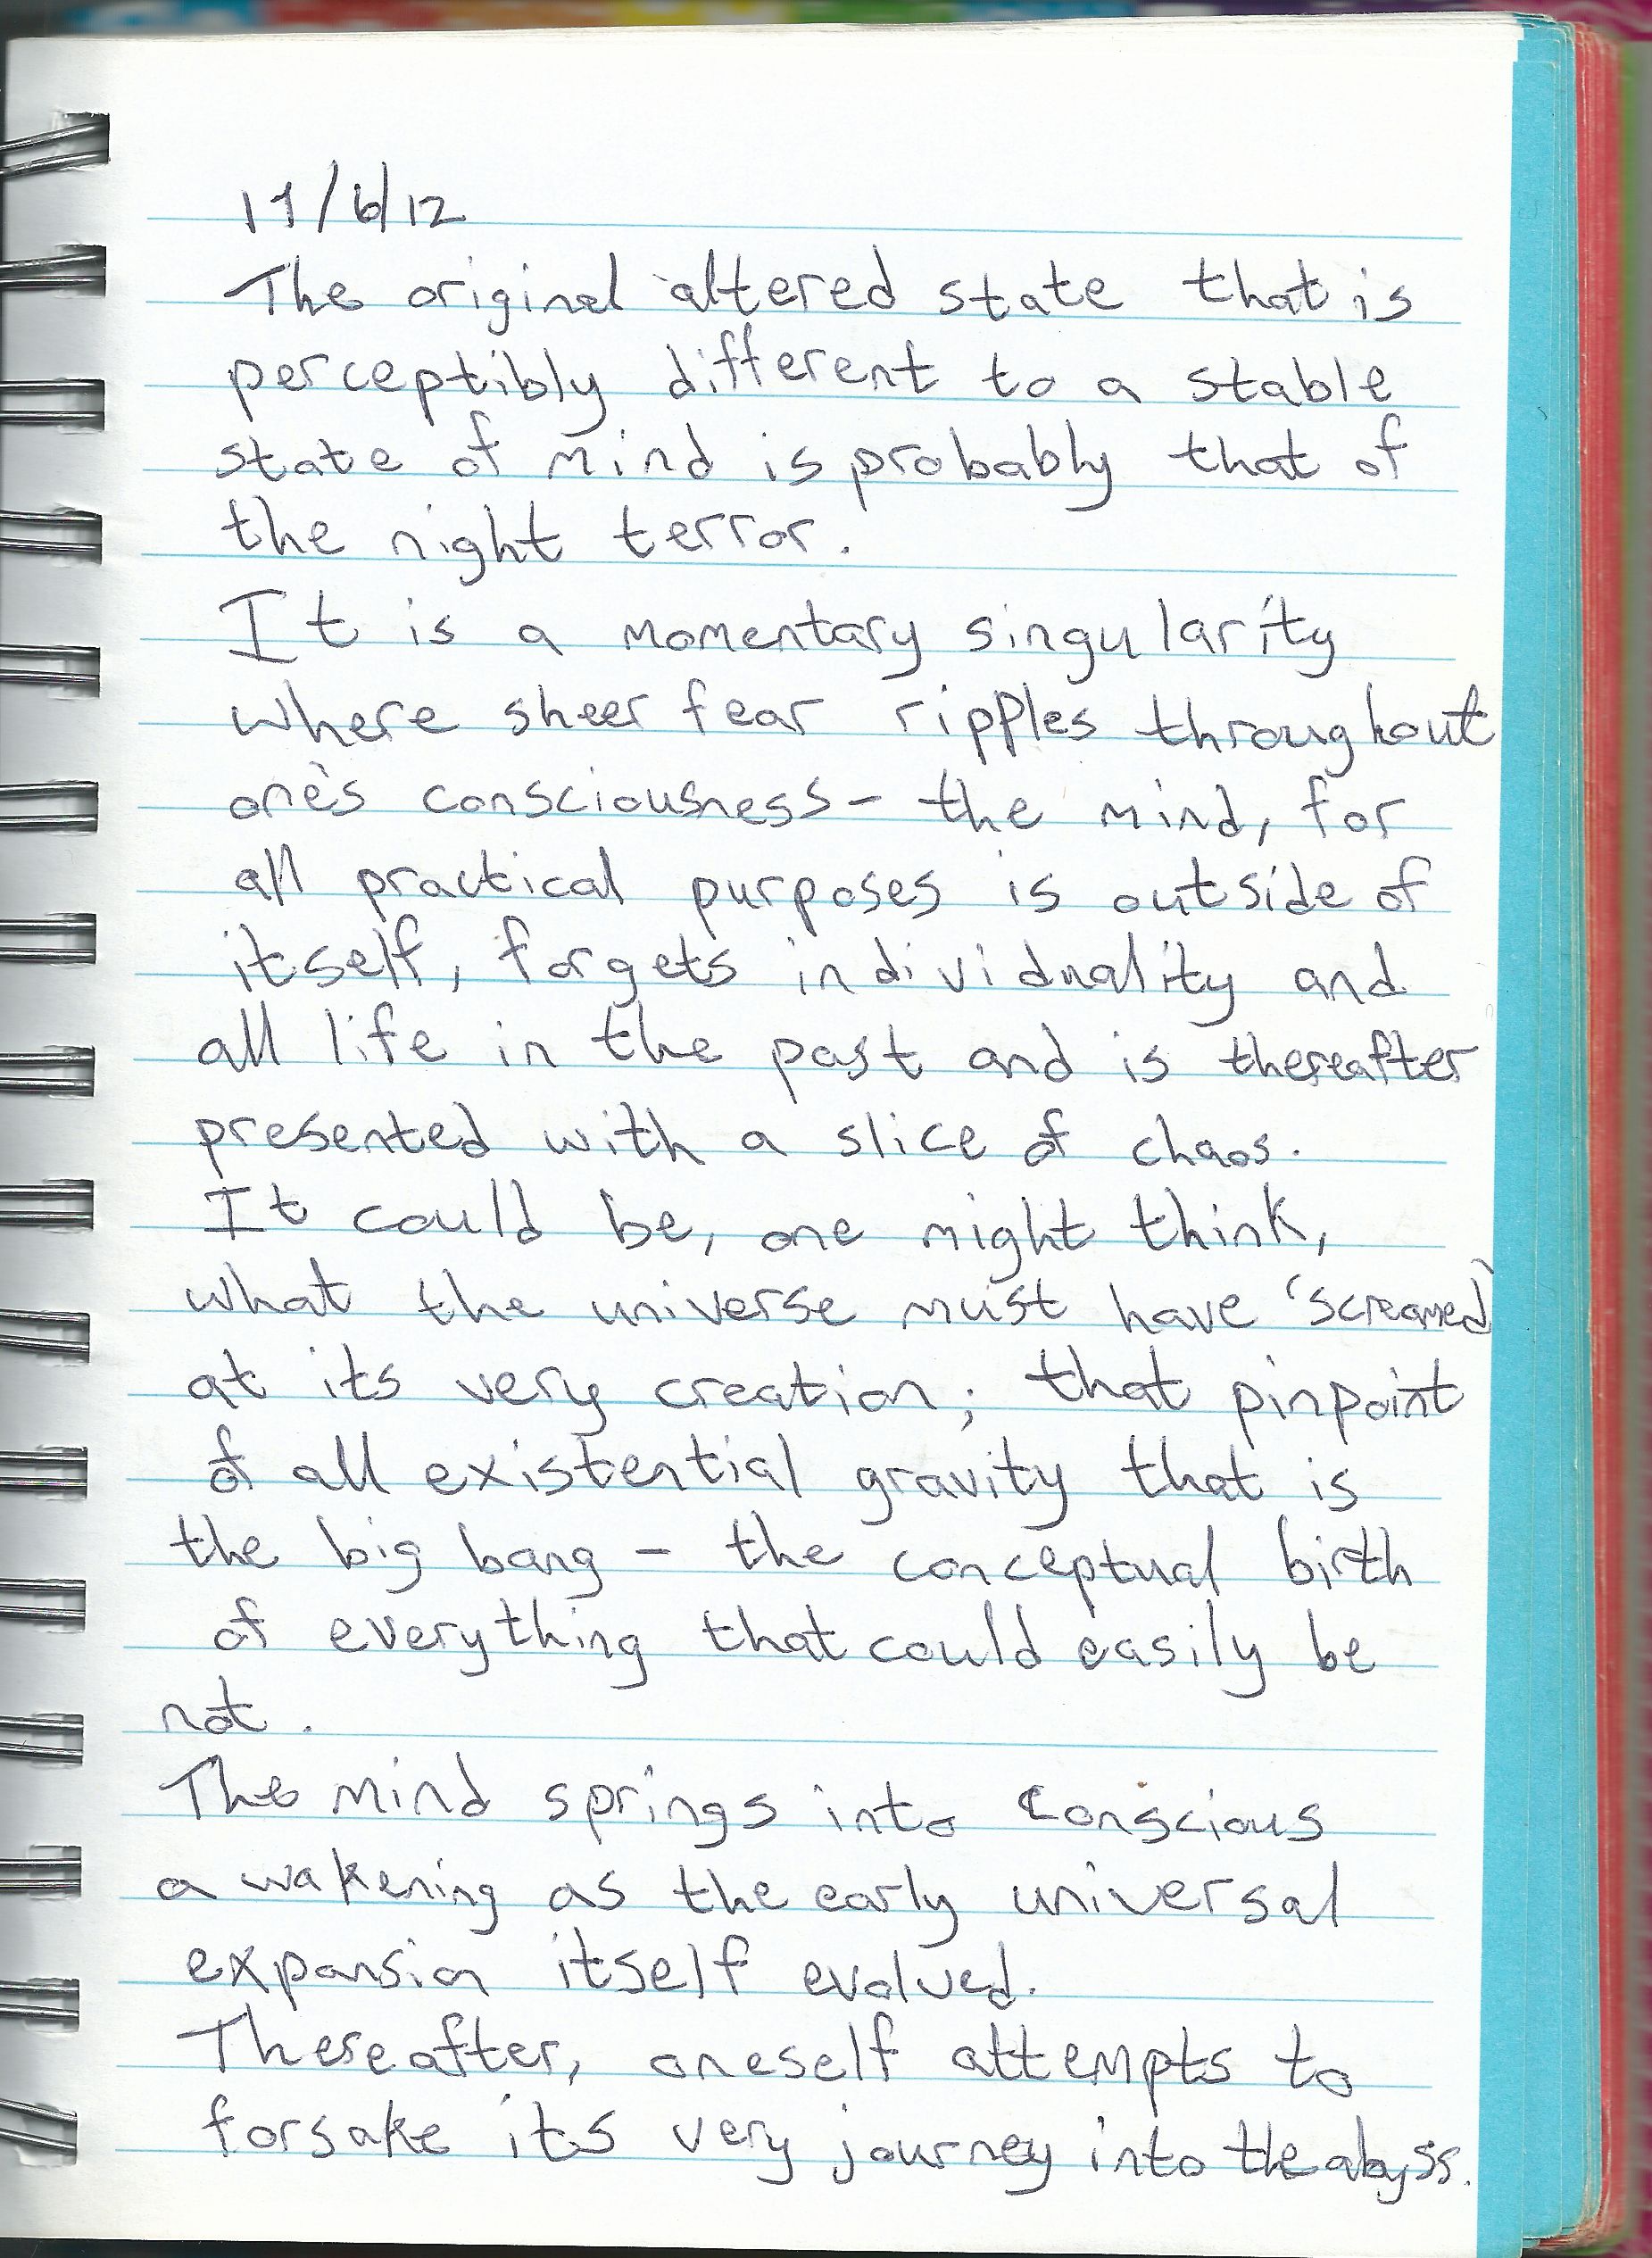 11/6/12
The original altered state that is
perceptibly different to a stable
state of mind is probably that of
the night terror.
It is a momentary singularity
where sheer fear ripples throughout
one's consciousness - the mind, for
all practical purposes is outside of
itself, forgets individuality and
all life in the past and is thereafter
presented with a slice of chaos.
It could be, one might think,
what the universe must have 'screamed'
at its very creation; that pinpoint
of all existential gravity that is
the big bang - the conceptual birth
of everything that could easily be
not.
The mind springs into conscious
awakening as the early universal
expansion itself evolved.
Thereafter, oneself attempts to
forsake its very journey into the abyss.